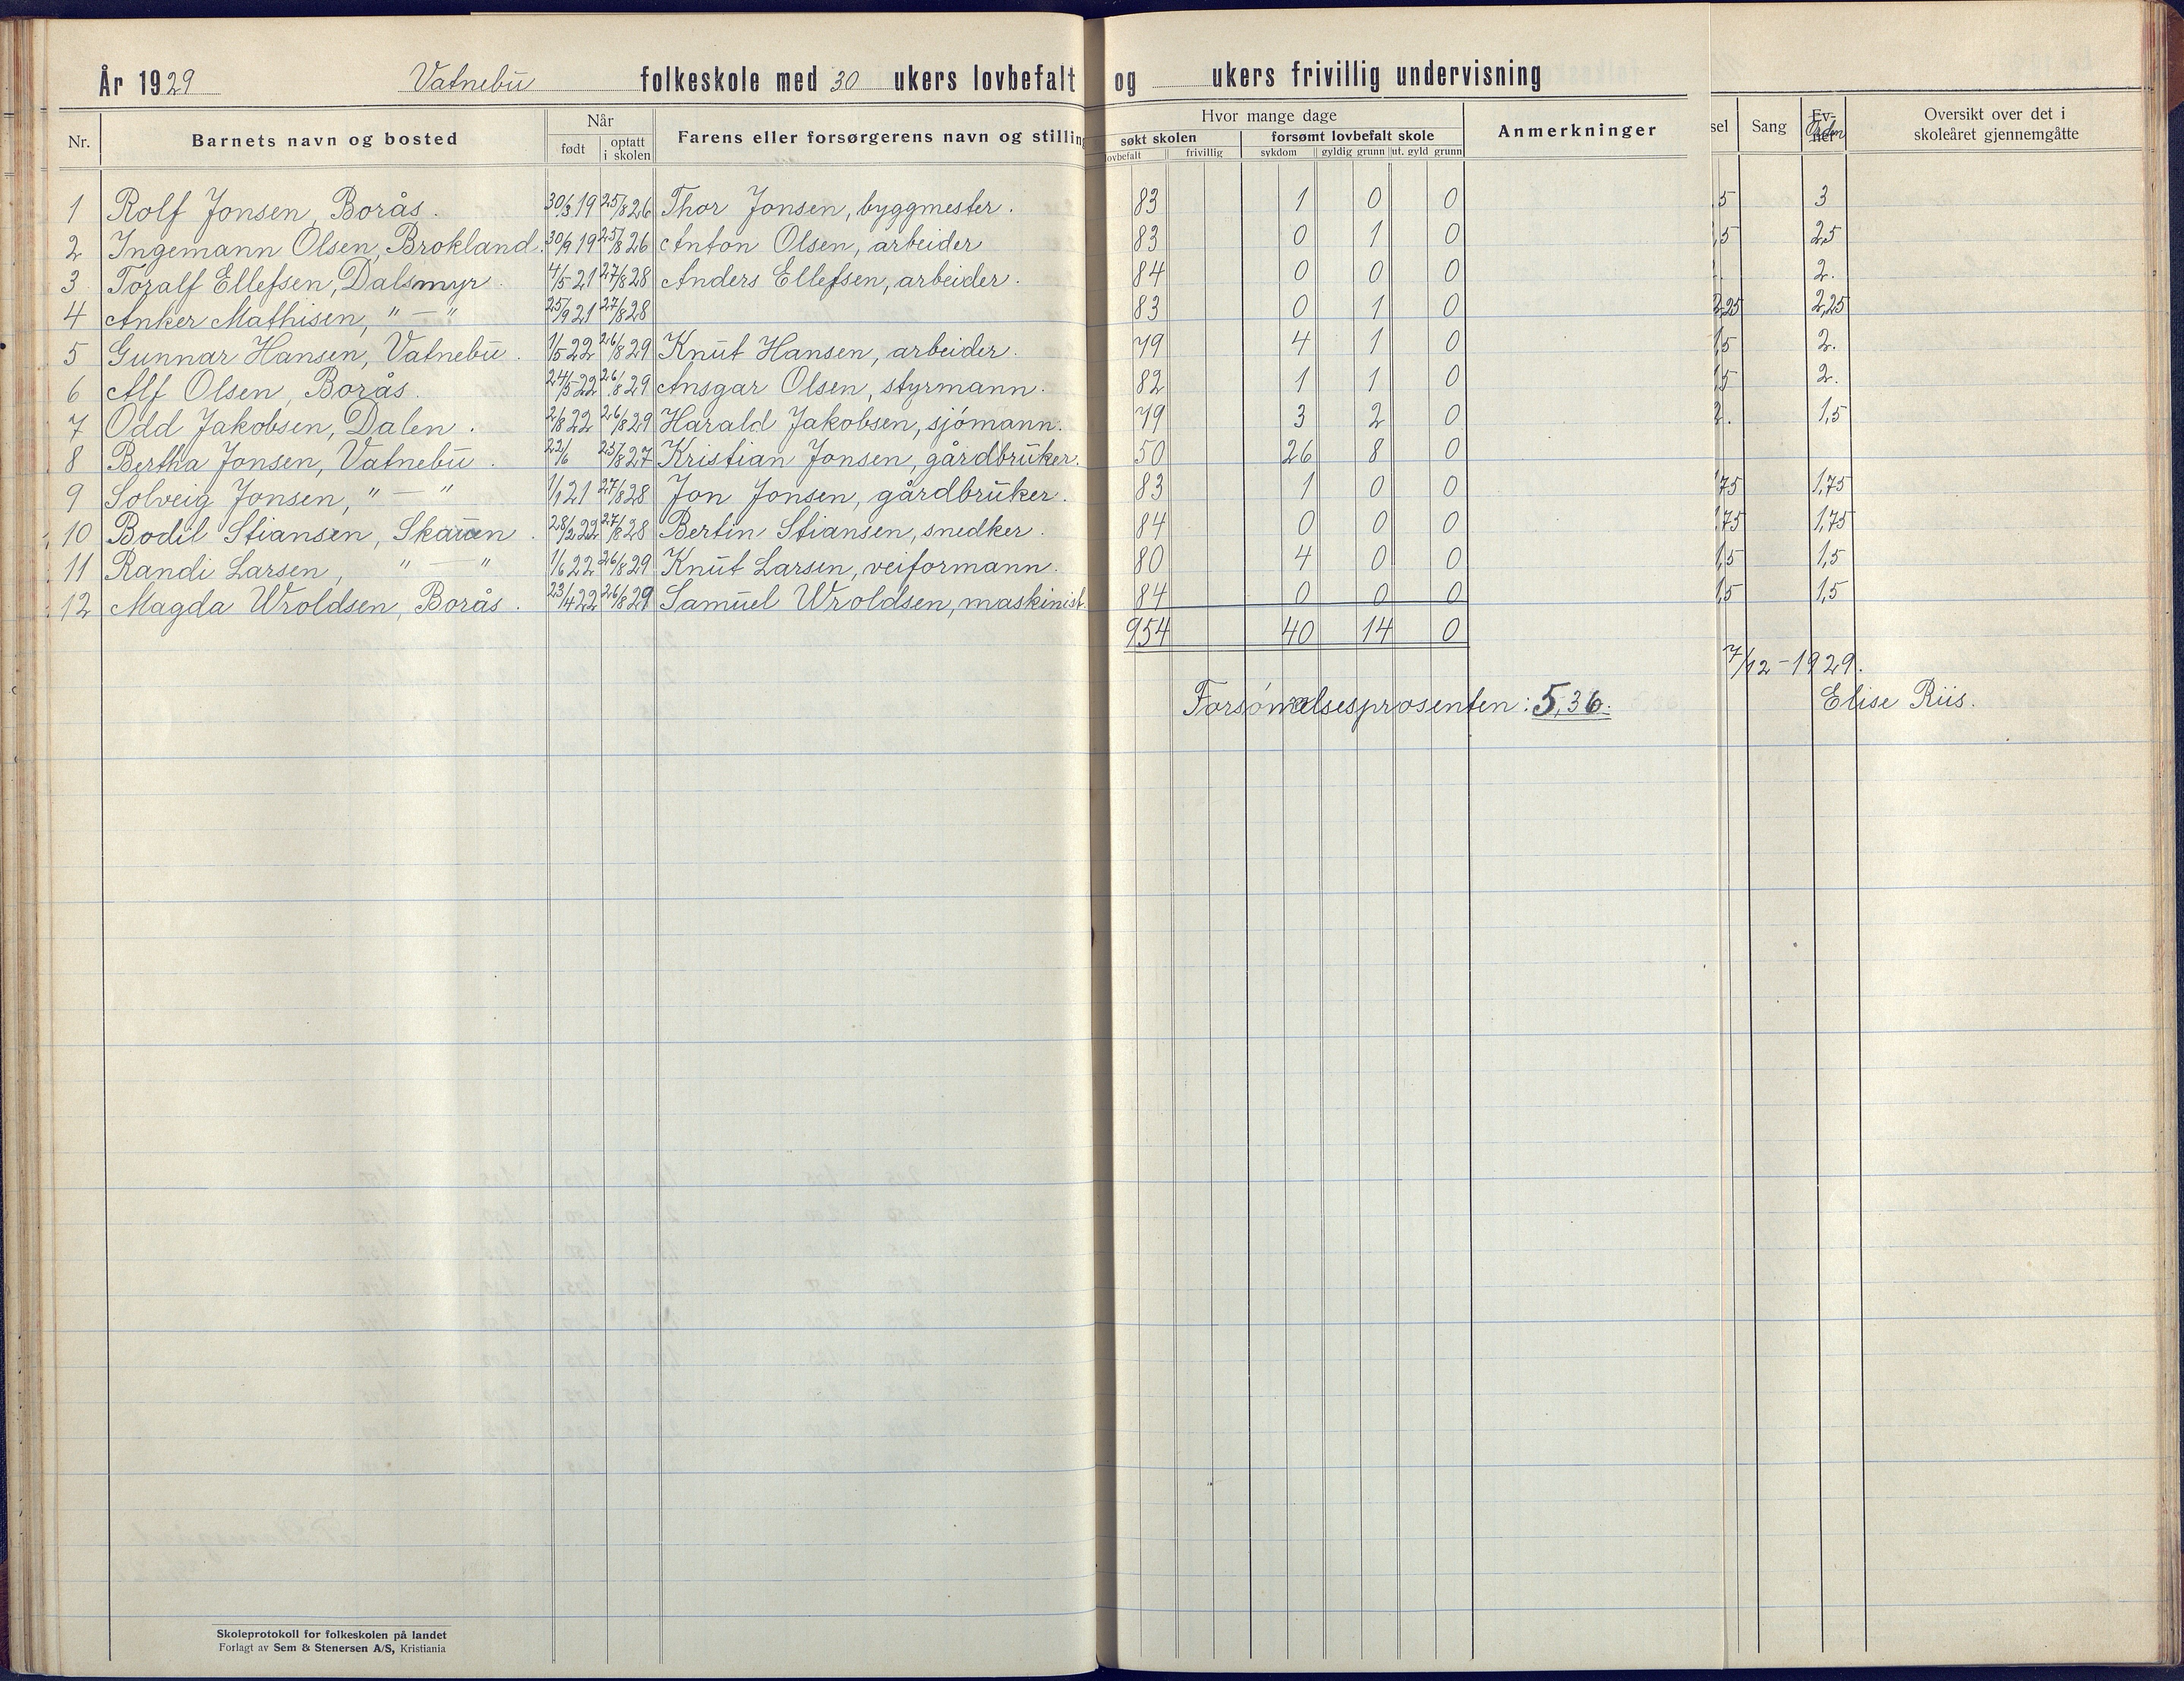 År 1929 Vatnebu folkeskole med 30 ukers lovbefalt og ukers frivillig undervisning
Nr. Barnets navn og bosted Når Farens eller forsørgerens navn og stilling Hvor mange dage Anmerkninger sel Sang Ev- Oversikt over det i
født optatt søkt skolen forsømt lovbefalt skole ner Orden skoleåret gjennemgåtte
i skolen lovbefalt frivillig sykdom gyldig grunn ut. gyld grunn
1 Rolf Jonsen, Borås. 30/3 19 25/8 26 Thor Jonsen, byggmester. 83 1 0 0 ,5 3
2 Ingemann Olsen, Brokland. 30/9 19 25/8 26 Anton Olsen, arbeider 83 0 1 0 ,5 2,5
3 Toralf Ellefsen, Dalsmyr. 4/5 21 27/8 28 Anders Ellefsen, arbeider. 84 0 0 0 2.
4 Anker Mathisen, " — " 25/9 21 27/8 28 83 0 1 0 2,25 2,25
5 Gunnar Hansen, Vatnebu. 1/5 22 26/8 29 Knut Hansen, arbeider. 79 4 1 0 1,5 2.
6 Alf Olsen, Borås. 24/5 22 26/8 29 Ansgar Olsen, styrmann. 82 1 1 0 1,5 2.
7 Odd Jakobsen, Dalen. 2/8 22 26/8 29 Harald Jakobsen, sjömann. 79 3 2 0 2. 1,5
8 Bertha Jonsen, Vatnebu. 22/6 25/8 27 Kristian Jonsen, gårdbruker. 50 26 8 0
9 Solveig Jonsen, " — " 1/1 21 27/8 28 Jon Jonsen, gårdbruker. 83 1 0 0 1,75 1,75
10 Bodil Stiansen, Skauen. 28/2 22 27/8 28 Bertin Stiansen, snedker. 84 0 0 0 1,75 1,75
11 Randi Larsen, " — " 1/6 22 26/8 29 Knut Larsen, veiformann. 80 4 0 0 1,5 1,5
12 Magda Wroldsen, Borås. 23/4 22 26/8 29 Samuel Wroldsen, maskinist. 84 0 0 0 1,5 1,5
954 40 14 0
7/12 - 1929.
Forsömmelsesprosenten: 5,36.
Elise Riis.
Skoleprotokoll for folkeskolen på landet
Forlagt av Sem & Stenersen A/S, Kristiania